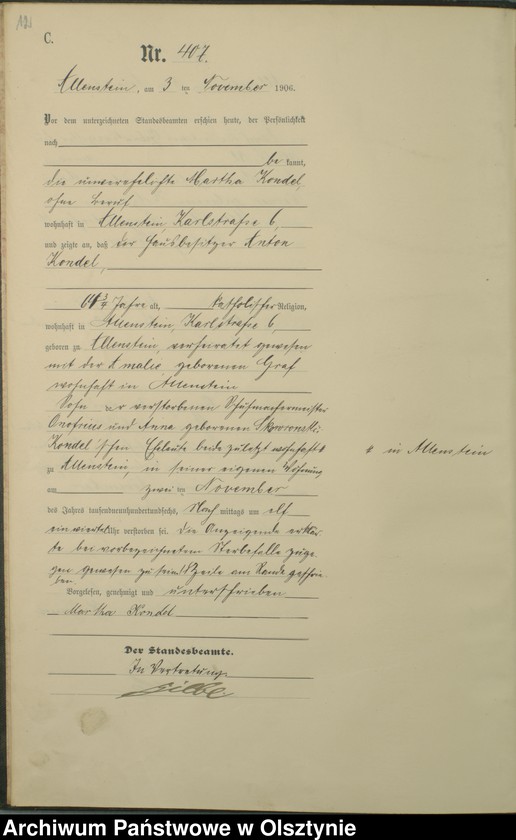 C.
Nr. 407.
Allenstein, am 3 ten November 1906.
Vor dem unterzeichneten Standesbeamten erschien heute, der Persönlichkeit
nach
be kannt,
die unverehelichte Martha Kondel,
ohne Beruf
wohnhaft in Allenstein Karlstraße 6,
und zeigte an, daß der Hausbesitzer Anton
Kondel,
3/4 Jahre alt, katholischer Religion,
wohnhaft in Allenstein, Karlstraße 6,
geboren zu Allenstein, verheiratet gewesen
mit der Amalie geborenen Graf
wohnhaft in Allenstein
Sohn der verstorbenen Schuhmachermeister
Onofrius und Anna geborenen Skowronski
Kondel'schen Eheleute beide zuletzt wohnhaft
in Allenstein
zu Allenstein, in seiner eigenen Wohnung
am zwei ten November
des Jahres tausendneunhundertundsechs, Nach mittags um elf
ein viertel Uhr verstorben sei. Die Anzeigende erklär
te bei vorbezeichnetem Sterbefalle zuge
gen gewesen zu sein. Zeile am Rande geschrie
ben
Vorgelesen, genehmigt und unterschrieben
Martha Kondel
Der Standesbeamte.
In Vertretung
Archiwum Państwowe w Olsztynie